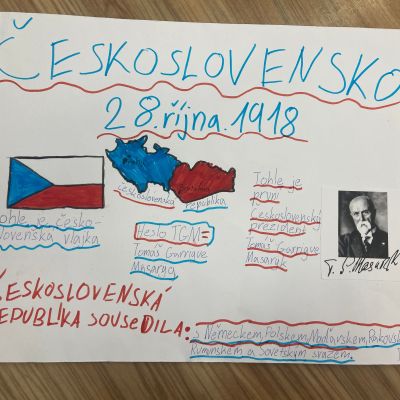 ČESKOSLOVENSKO
28.října.1918
Praha
Československá republika
Tohle je česko-
slovenská vlajka
Heslo TGM=
Tomáš Garrigue
Masaryq
Tohle je
první
Československý
prezident
Tomáš Garrigue
Masaryk
T. G. Masaryk
ČESKOSLOVENSKÁ
REPUBLIKA SOUSEDILA:
s Německem, Polskem, Maďarskem, Rakouskem
Rumunskem a Sovětským svazem.